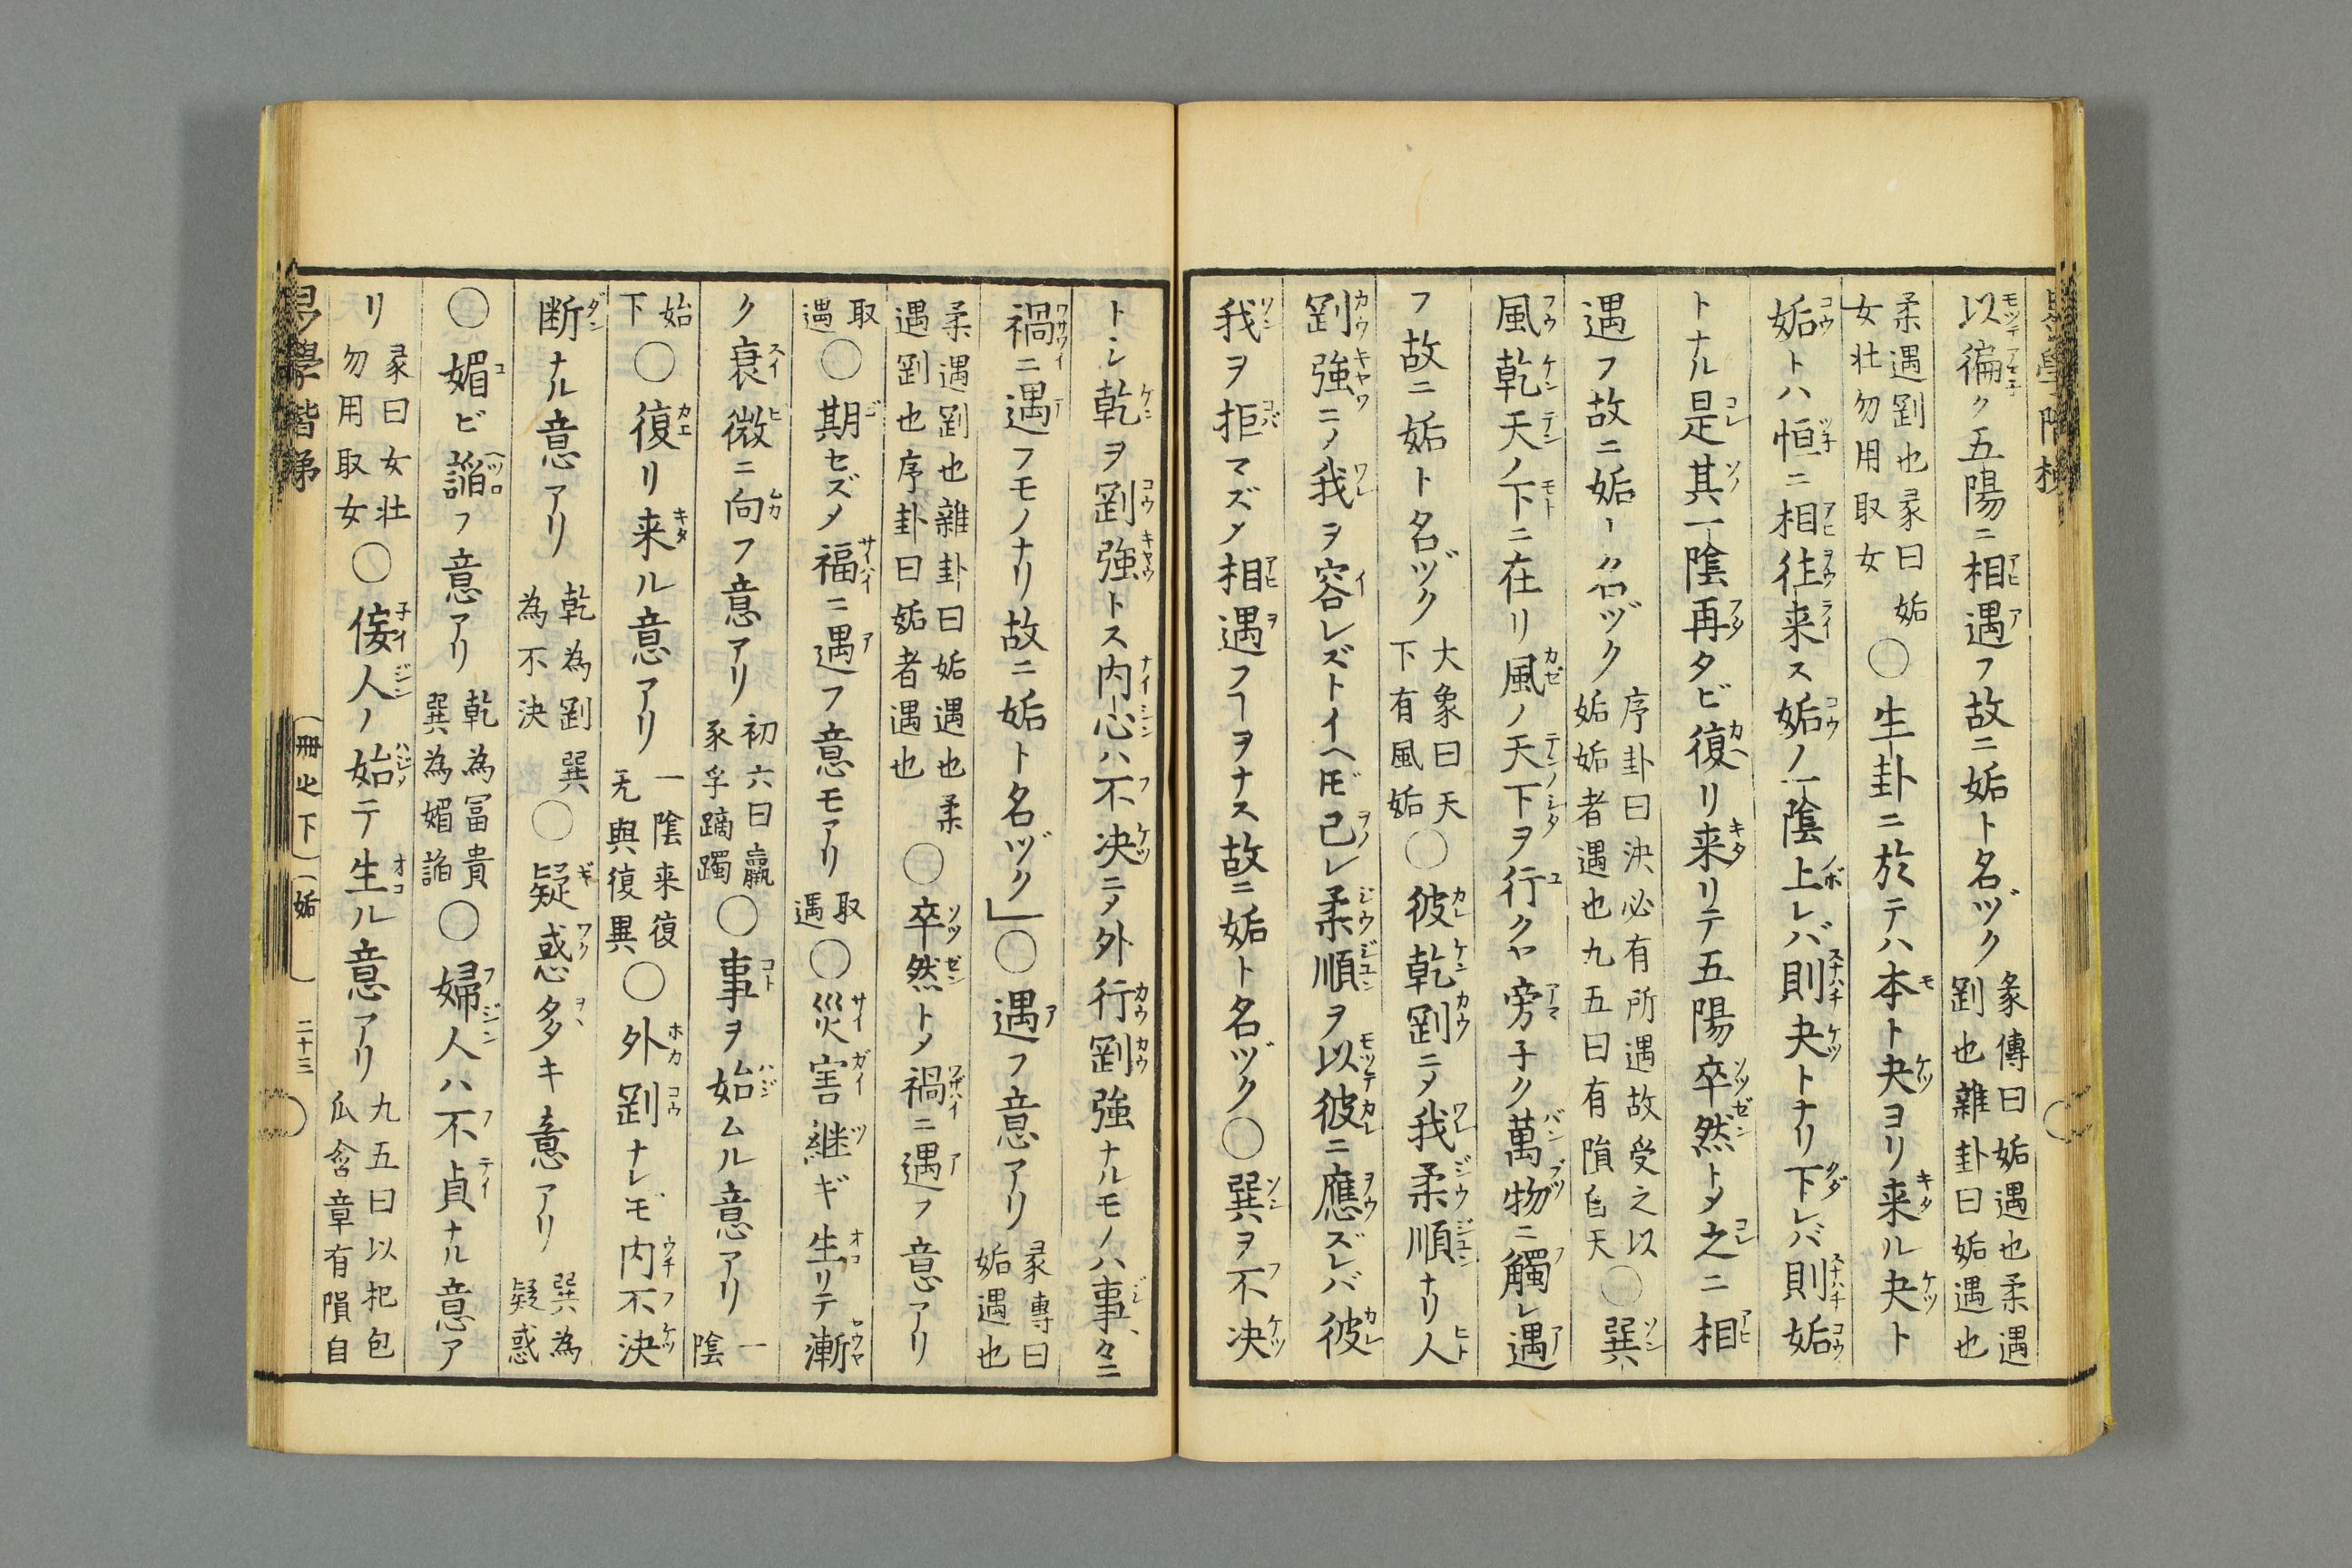 以徧ク五陽ニ相遇フ故ニ姤ト名ヅク 彖傳曰姤遇也柔遇
剛也雜卦曰姤遇也
柔遇剛也彖曰姤
女壮勿用取女 ○生卦ニ於テハ本ト夬ヨリ来ル夬ト
姤トハ恒ニ相往来ス姤ノ一陰上レバ則夬トナリ下レバ則姤
トナル是其一陰再タビ復リ来リテ五陽卒然トメ之ニ相
遇フ故ニ姤ト名ヅク 序卦曰決必有所遇故受之以
姤姤者遇也九五曰有隕自天 ○巽
風乾天ノ下ニ在リ風ノ天下ヲ行クヤ旁子ク萬物ニ觸レ遇
フ故ニ姤ト名ヅク 大象曰天
下有風姤 ○彼乾剛ニメ我柔順ナリ人
剛強ニメ我ヲ容レズトイヘ𪜈己レ柔順ヲ以彼ニ應ズレバ彼
我ヲ拒マズメ相遇フヿヲナス故ニ姤ト名ヅク○巽ヲ不決
トシ乾ヲ剛強トス内心ハ不決ニメ外行剛強ナルモノハ事々ニ
禍ニ遇フモノナリ故ニ姤ト名ヅク」○遇フ意アリ 彖傳曰
姤遇也
柔遇剛也雜卦曰姤遇也柔
遇剛也序卦曰姤者遇也 ○卒然トメ禍ニ遇フ意アリ
取
遇 ○期セズメ福ニ遇フ意モアリ 取
遇 ○災害継ギ生リテ漸
ク衰微ニ向フ意アリ 初六曰羸
豕孚蹢躅 ○事ヲ始ムル意アリ 一
陰
始
下 ○復リ来ル意アリ 一陰来復
无與復異 ○外剛ナレ𪜈内不決
断ナル意アリ 乾為剛巽
為不決 ○疑惑多キ意アリ 巽為
疑惑
○媚ビ諂フ意アリ 乾為冨貴
巽為媚諂 ○婦人ハ不貞ナル意ア
リ 彖曰女壮
勿用取女 ○侫人ノ始テ生ル意アリ 九五曰以杞包
瓜含章有隕自
易學階梯
冊之下
姤
二十三